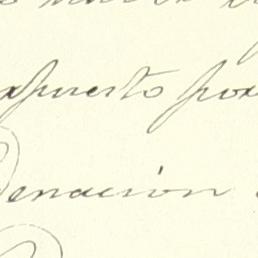 xpuesto por
denacion